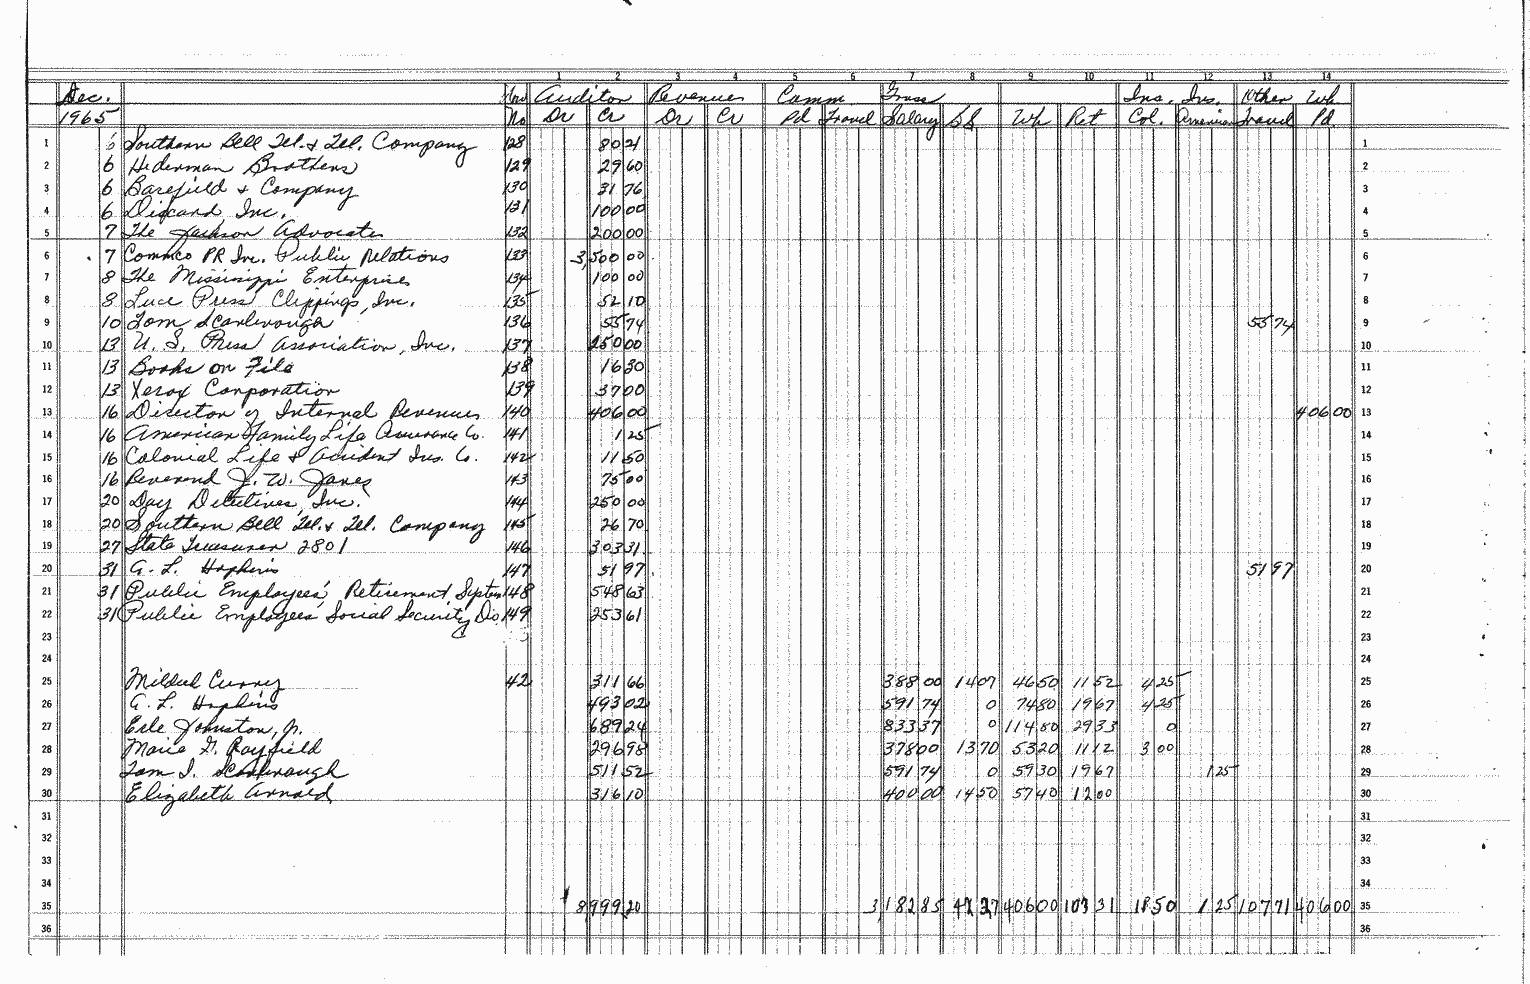 1 2 3 4 5 6 7 8 9 10 11 12 13 14
Dec. Auditor Revenues Comm Gross Ins. Ins. Other Wh
1965 No Dr Cr Dr Cr Pd Travel Salary SS Wh Ret Col. American Travel Pd.
1 6 Southern Bell Tel. & Tel. Company 128 80 21 1
2 6 Hederman Brothers 129 29 60 2
3 6 Barefield & Company 130 31 76 3
4 6 Discard Inc. 131 100 00 4
5 7 The Jackson Advocate 132 200 00 5
6 7 Commco PR Inc. Public Relations 133 3,500 00 6
7 8 The Mississippi Enterprises 134 100 00 7
8 8 Luce Press Clippings, Inc. 135 52 10 8
9 10 Tom Scarbrough 136 55 74 55 74 9
10 13 U. S. Press Association, Inc. 137 250 00 10
11 13 Books on File 138 16 30 11
12 13 Xerox Corporation 139 37 00 12
13 16 Director of Internal Revenues 140 406 00 406 00 13
14 16 American Family Life Assurance Co. 141 1 25 14
15 16 Colonial Life & Accident Ins. Co. 142 11 50 15
16 16 Reverend J. W. Jones 143 75 00 16
17 20 Day Detectives, Inc. 144 250 00 17
18 20 Southern Bell Tel. & Tel. Company 145 26 70 18
19 27 State Treasurer 2801 146 303 31 19
20 31 A. L. Hopkins 147 51 97 51 97 20
21 31 Public Employees' Retirement System 148 548 63 21
22 31 Public Employees' Social Security Dis. 149 253 61 22
23 23
24 24
25 Mildred Curry 42 311 66 388 00 14 07 46 50 11 52 4 25 25
26 A. L. Hopkins 493 02 591 74 0 74 80 19 67 4 25 26
27 Erle Johnston, Jr. 689 24 833 37 0 114 80 29 33 0 27
28 Marie G. Rayfield 296 98 378 00 13 70 53 20 11 12 3 00 28
29 Tom I. Scarbrough 511 52 591 74 0 59 30 19 67 1 25 29
30 Elizabeth Arnold 316 10 400 00 14 50 57 40 12 00 30
31 31
32 32
33 33
34 34
35 8,999 20 3,182 85 42 27 406 00 103 31 11 50 1 25 107 71 406 00 35
36 36